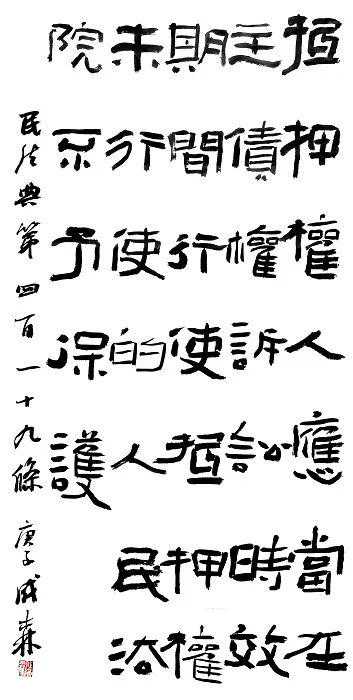 抵押權人應當在
主債權訴訟時效
期間行使抵押權
未行使的人民法
院不予保護
民法典第四百一十九條 庚子成森